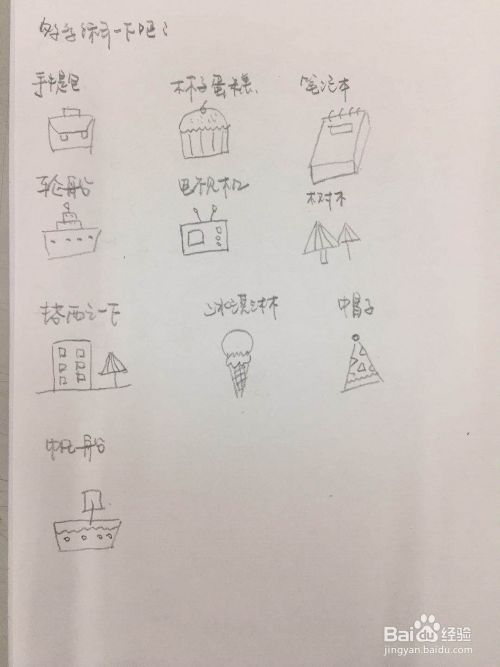 好好练习一下吧！
手提包 杯子蛋糕 笔记本
轮船 电视机 树木
搭配一下 冰淇淋 帽子
帆船
Baidu 经验
jingyan.baidu.com